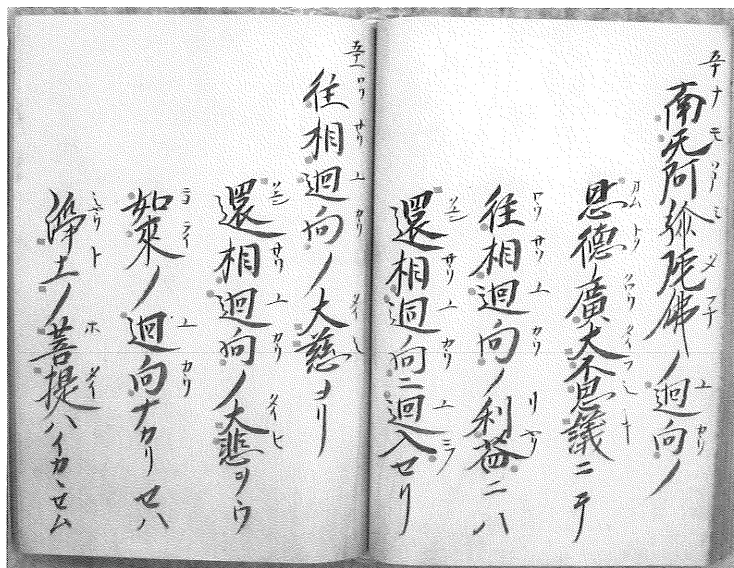 南无阿弥陀佛ノ迴向ノ
恩德廣大不思議ニテ
往相迴向ノ利益ニハ
還相迴向ニ迴入セリ
往相迴向ノ大慈ヨリ
還相迴向ノ大悲ヲウ
如來ノ迴向ナカリセハ
淨土ノ菩提ハイカヽセム